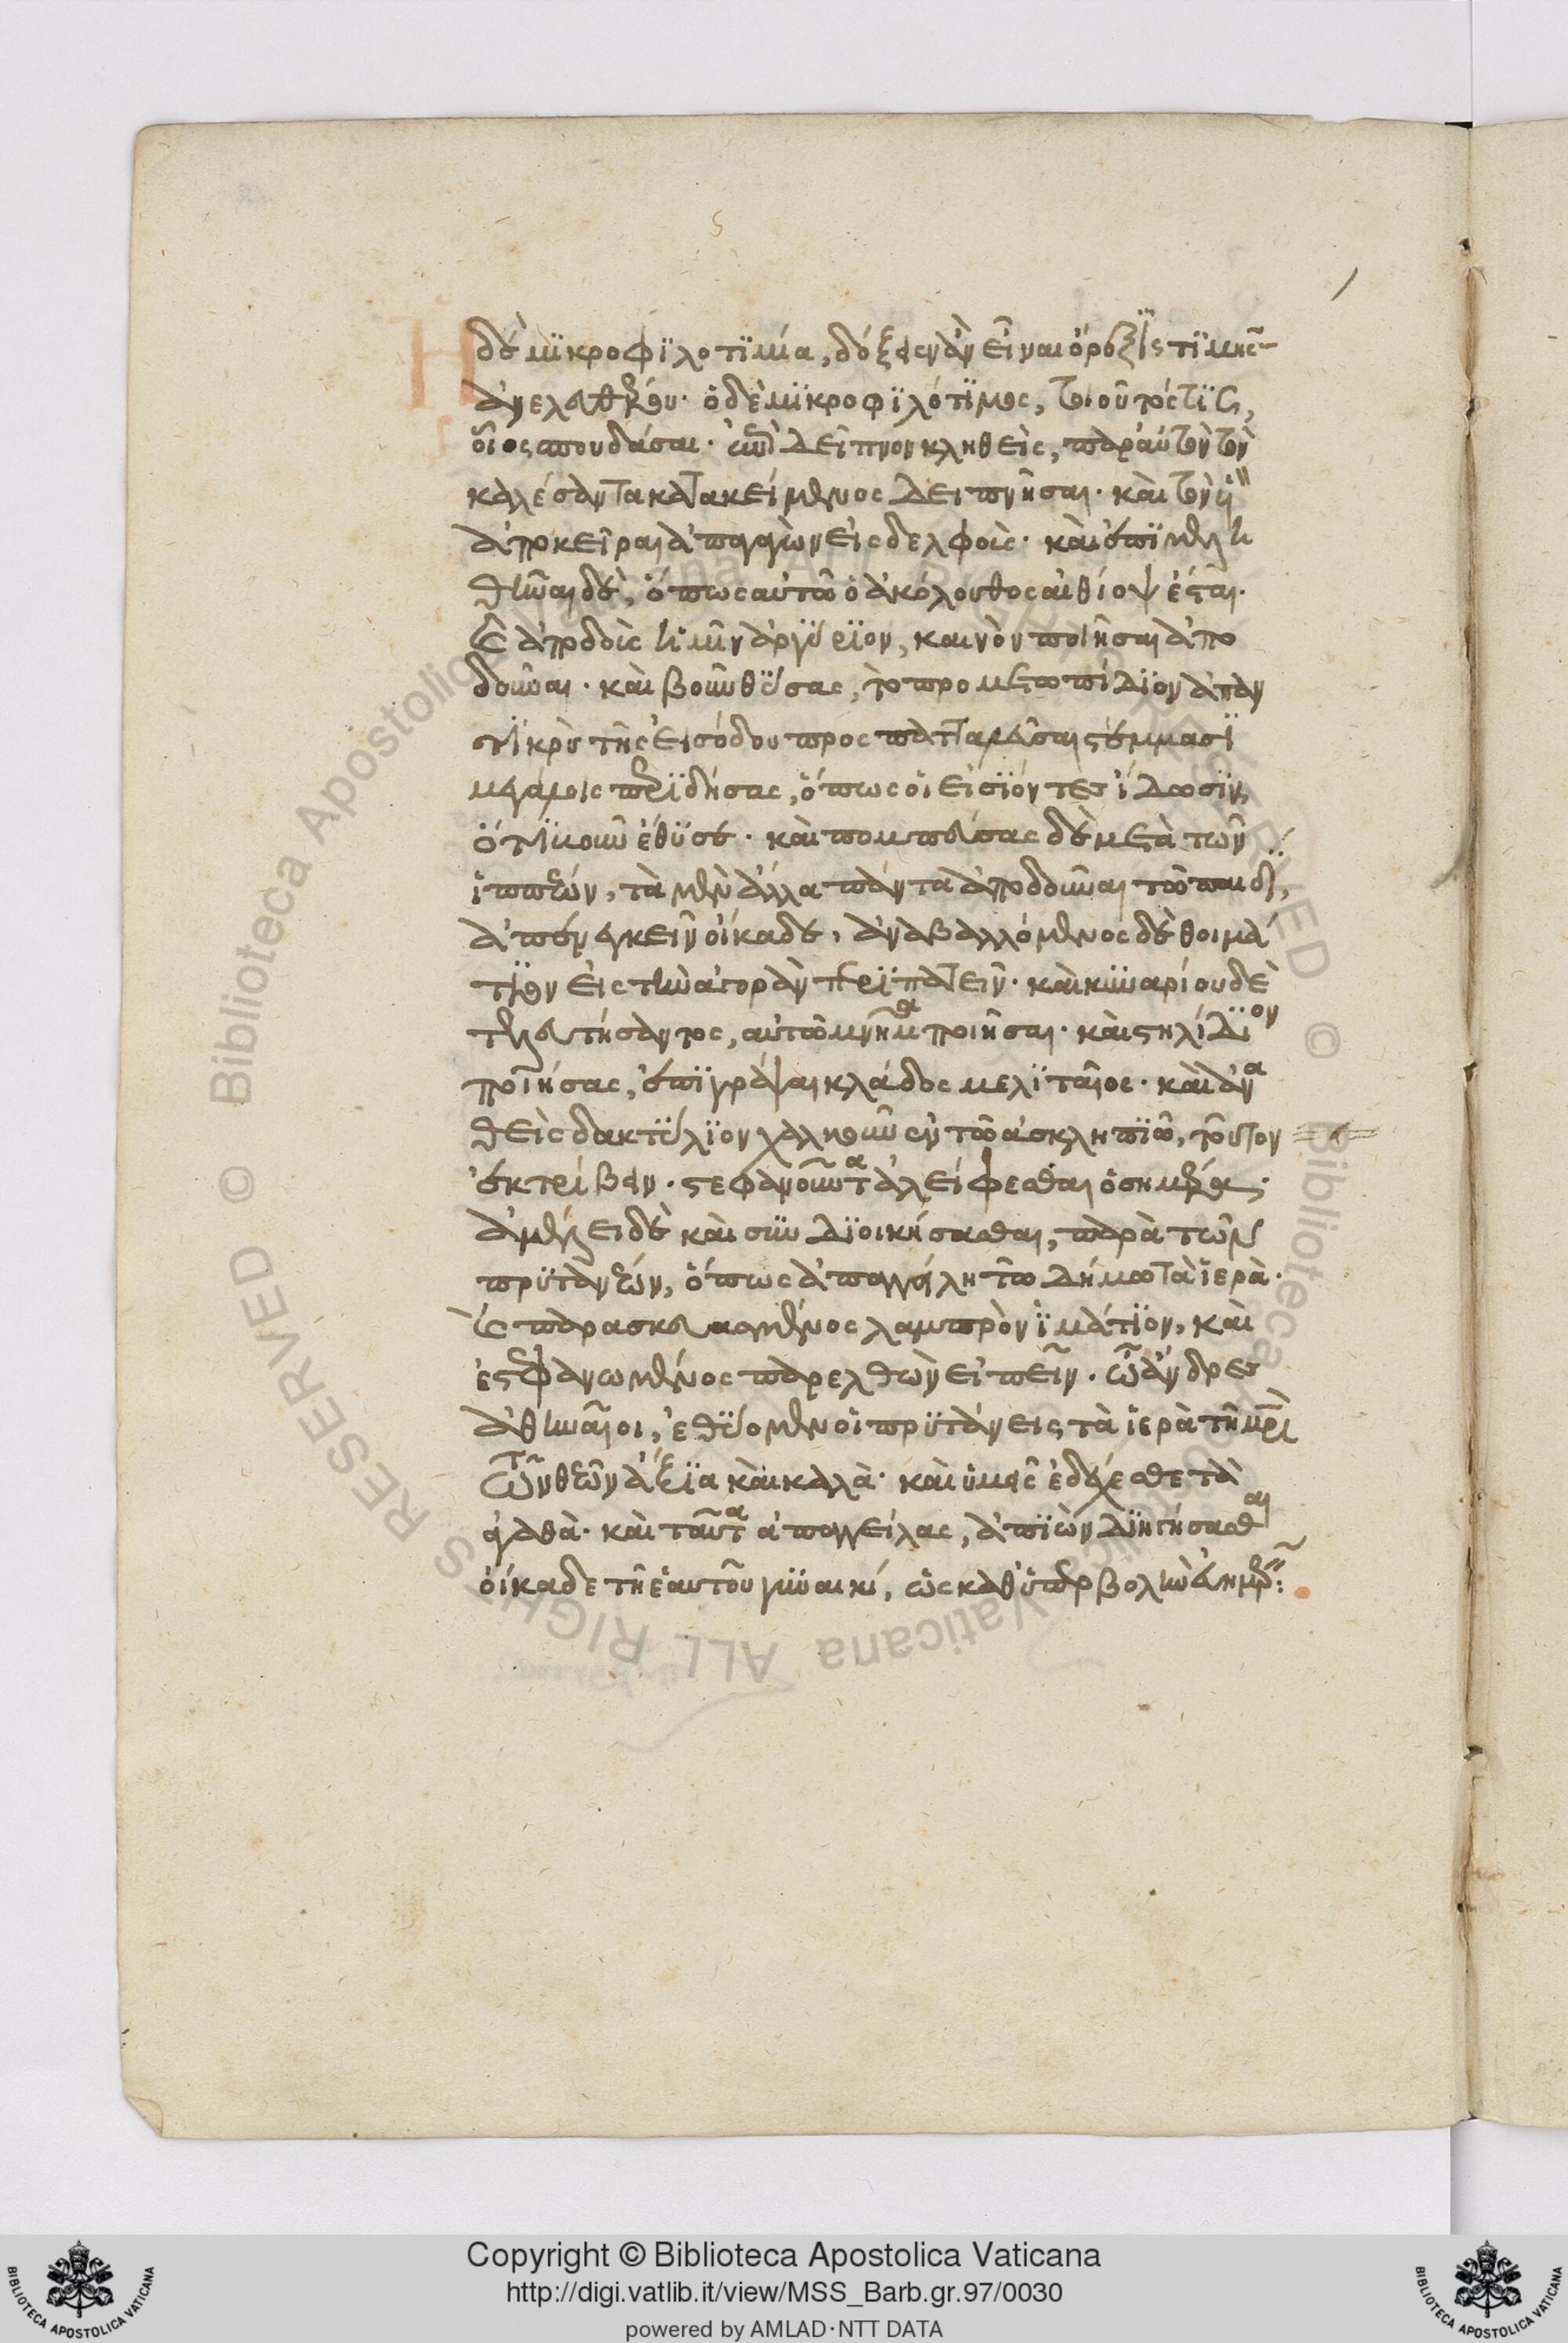 Η δὲ μϊκροφϊλοτϊμία, δόξειεν ἂν εἶναι ὄρεξϊς τϊμῆς
ἀνελευθέρου· ὁ δὲ μϊκροφϊλότϊμος, τοιοῦτός τϊς,
οἷος σπουδάσαι· ἐπὶ δεῖπνον κληθεὶς, παρ' αὐτὸν τὸν
καλέσαντα κατακείμενος δειπνῆσαι· καὶ τὸν ϋν
ἀποκεῖραι ἀπαγαγὼν εἰς δελφοὺς· καὶ ἐπϊμελη
θῆναι δὲ, ὅπως αὐτῶ ὁ ἀκόλουθος αἰθίοψ ἔσται·
καὶ ἀποδοὺς μνᾶν ἀργϋρϊον, καινὸν ποιῆσαι ἀπο
δοῦναι· καὶ βοῦν θϋσας, τὸ προμετωπίδϊον ἀπαν
τϊκρὺ τῆς εἰσόδου προσπατταλεῦσαι στέμμασϊ
μεγάλοις περϊδήσας, ὅπως οἱ εἰσϊόντες ἴδωσϊν,
ὅτϊ βοῦν ἔθϋσε· καὶ πομπεύσας δὲ μετὰ τῶν
ἱππέων, τὰ μὲν ἄλλα πάντα ἀποδοῦναι τῶ παιδὶ,
ἀπενεγκεῖν οἴκαδε, ἀναβαλλόμενος δὲ θοιμά
τϊον εἰς τὴν ἀγορὰν περϊπατεῖν· καὶ κϋναρίου δὲ
τελευτήσαντος, αὐτῶ μνῆμα ποιῆσαι· καὶ στηλίδϊον
ποιήσας, ἐπϊγράψαι κλάδος μελϊταῖος· καὶ ἀνα
θεὶς δακτϋλϊον χαλκοῦν ἐν τῶ ἀσκληπϊῶ, τοῦτον
ἐκτρίβειν· στεφανοῦντα ἀλείφεσθαι ὁσημέραι·
ἀμέλει δὲ καὶ συνδϊοικήσασθαι, παρὰ τῶν
πρϋτάνεων, ὅπως ἀπαγγείλη τῶ δήμω τὰ ἱερὰ·
καὶ παρασκευασμένος λαμπρὸν ϊμάτϊον, καὶ
ἐστεφανωμένος παρελθὼν εἰπεῖν· ὦ ἄνδρες
ἀθηναῖοι, ἐθϋομεν οἱ πρϋτάνεις τὰ ἱερὰ τῆ μητρὶ
τῶν θεῶν ἄξϊα καὶ καλὰ· καὶ ὑμεῖς ἐδέχεσθε τὰ
ἀγαθὰ· καὶ ταῦτα ἀπαγγείλας, ἀπϊὼν δϊηγήσασθαι
οἴκαδε τῆ ἑαυτοῦ γϋναικί, ὡς καθ' ὑπερβολὴν εὐημερεῖν:
Copyright © Biblioteca Apostolica Vaticana
http://digi.vatlib.it/view/MSS_Barb.gr.97/0030
powered by AMLAD·NTT DATA